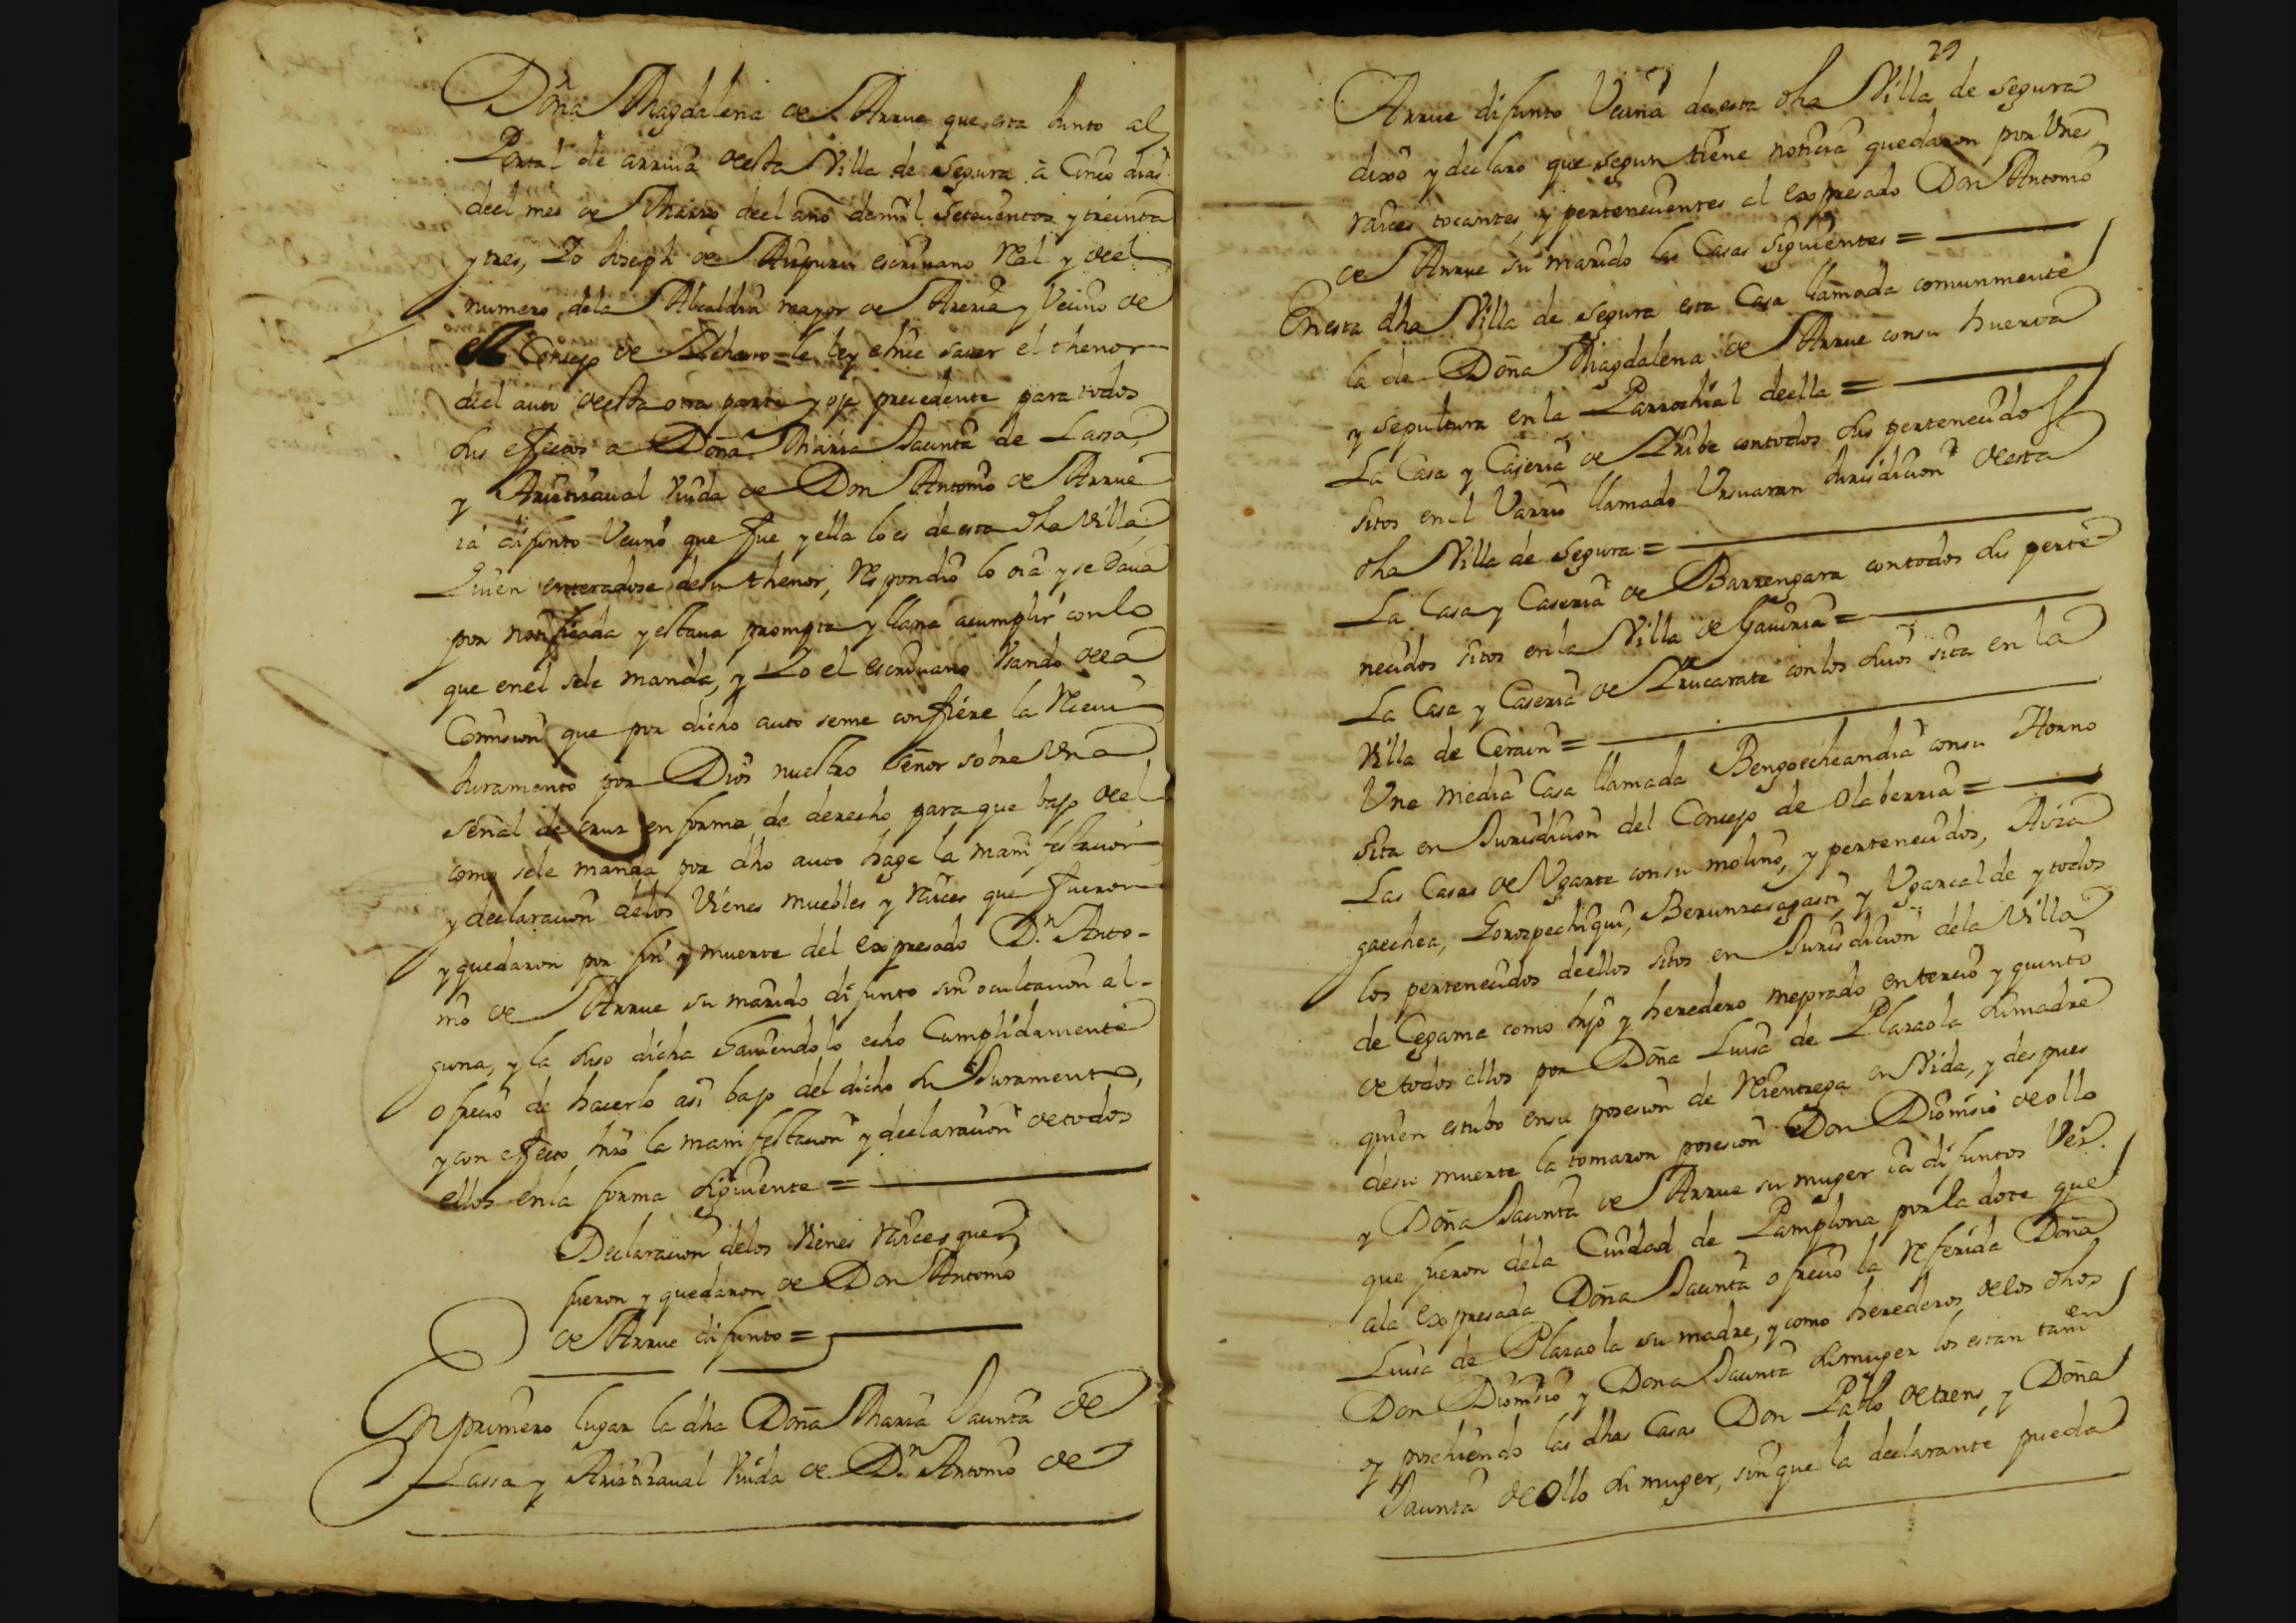 Doña Magdalena de Arrue que esta junto al
Portal de arriua de esta Villa de Segura â Cinco dias
deel mes de Marzo deel año de mil Setecientos y treinta
y tres, Yo Joseph de Aizpuru escriuano Real y deel
numero dela Alcaldia mayor de Areria y Vecino de
el Concejo de Lazcano = le ley e hice sauer el thenor
deel auto deesta otra parte y oja precedente para todos
sus efectos a Doña Maria Jacinta de Lassa,
y Aristizaual Viuda de Don Antonio de Arrue
ia difunto Vecino que fue y ella lo es de esta dha Villa
Quien enteradose desu thenor, Respondio lo oia y se daua
por notificada y estaua prompta y llana acumplir con lo
que enel sele manda, y Yo el escriuano Vsando dela
Comision que por dicho auto seme confiere la Reciui
Juramento por Dios nuestro Señor sobre Vna
señal de cruz en forma de derecho para que bajo deel
como sele manda por dho auto haga la manifestacion
y declaracion delos Vienes muebles y raices que fueron
y quedaron por fin y muerte del expresado D.n Anto-
nio de Arrue su marido difunto sin ocultacion al-
guna, y la suso dicha hauiendolo echo Cumplidamente
ofrecio de hacerlo asi bajo del dicho su Juramento,
y con efecto hizo la manifestacion y declaracion de todos
ellos enla forma siguiente =
Declaracion delos Vienes raices que
fueron y quedaron de Don Antonio
de Arrue difunto =
En primero lugar la dha Doña Maria Jacinta de
Lassa y Aristizaual Viuda de D.n Antonio de
29
Arrue difunto Vecina de esta dha Villa de Segura
dixo y declaro que segun tiene noticia quedaron por Vnes
raices tocantes, y pertenecientes al expresado Don Antonio
de Arrue su marido las Casas siguientes =
En esta dha Villa de Segura esta Casa llamada comunmente
la de Doña Magdalena de Arrue consu huerta
y sepultura enla Parrochial deella =
La Casa y Caseria de Yribe contodos sus pertenecidos
sitos enel Varrio llamado Vrsuaran Jurisdicion deesta
dha Villa de Segura =
La Casa y Caseria de Barrengara contodos sus perte-
necidos sitos enla Villa de Gauiria =
La Casa y Caseria de Yrucarate con los suios sita en la
Villa de Cerain =
Una media Casa llamada Bengoecheandia consu Horno
sita en Jurisdicion del Concejo de Olaberria =
Las Casas de Vgarte consu molino, y pertenecidos, Aiza
gaechea, Gorozpechiqui, Berunzasagasti, y Vgarcalde y todos
los pertenecidos deellos sitos en Jurisdicion dela Villa
de Cegama como hijo y heredero mejorado en tercio y quinto
de todos ellos por Doña Luisa de Plazaola su madre
quien estubo ensu posesion de Reentrega en Vida, y despues
desu muerte la tomaron posesion Don Dionisio de ollo
y Doña Jacinta de Arrue su muger ia difuntos Vez.s
que fueron dela Ciudad de Pamplona por la dote que
ala expresada Doña Jacinta ofrecio la referida Doña
Luisa de Plazaola su madre, y como herederos de los dhos
Don Dionisio y Dona Jacinta su muger los estan tamien
y poseiendo las dhas Casas Don Pablo de trens, y Doña
Jacinta de Ollo su muger, sin que la declarante pueda